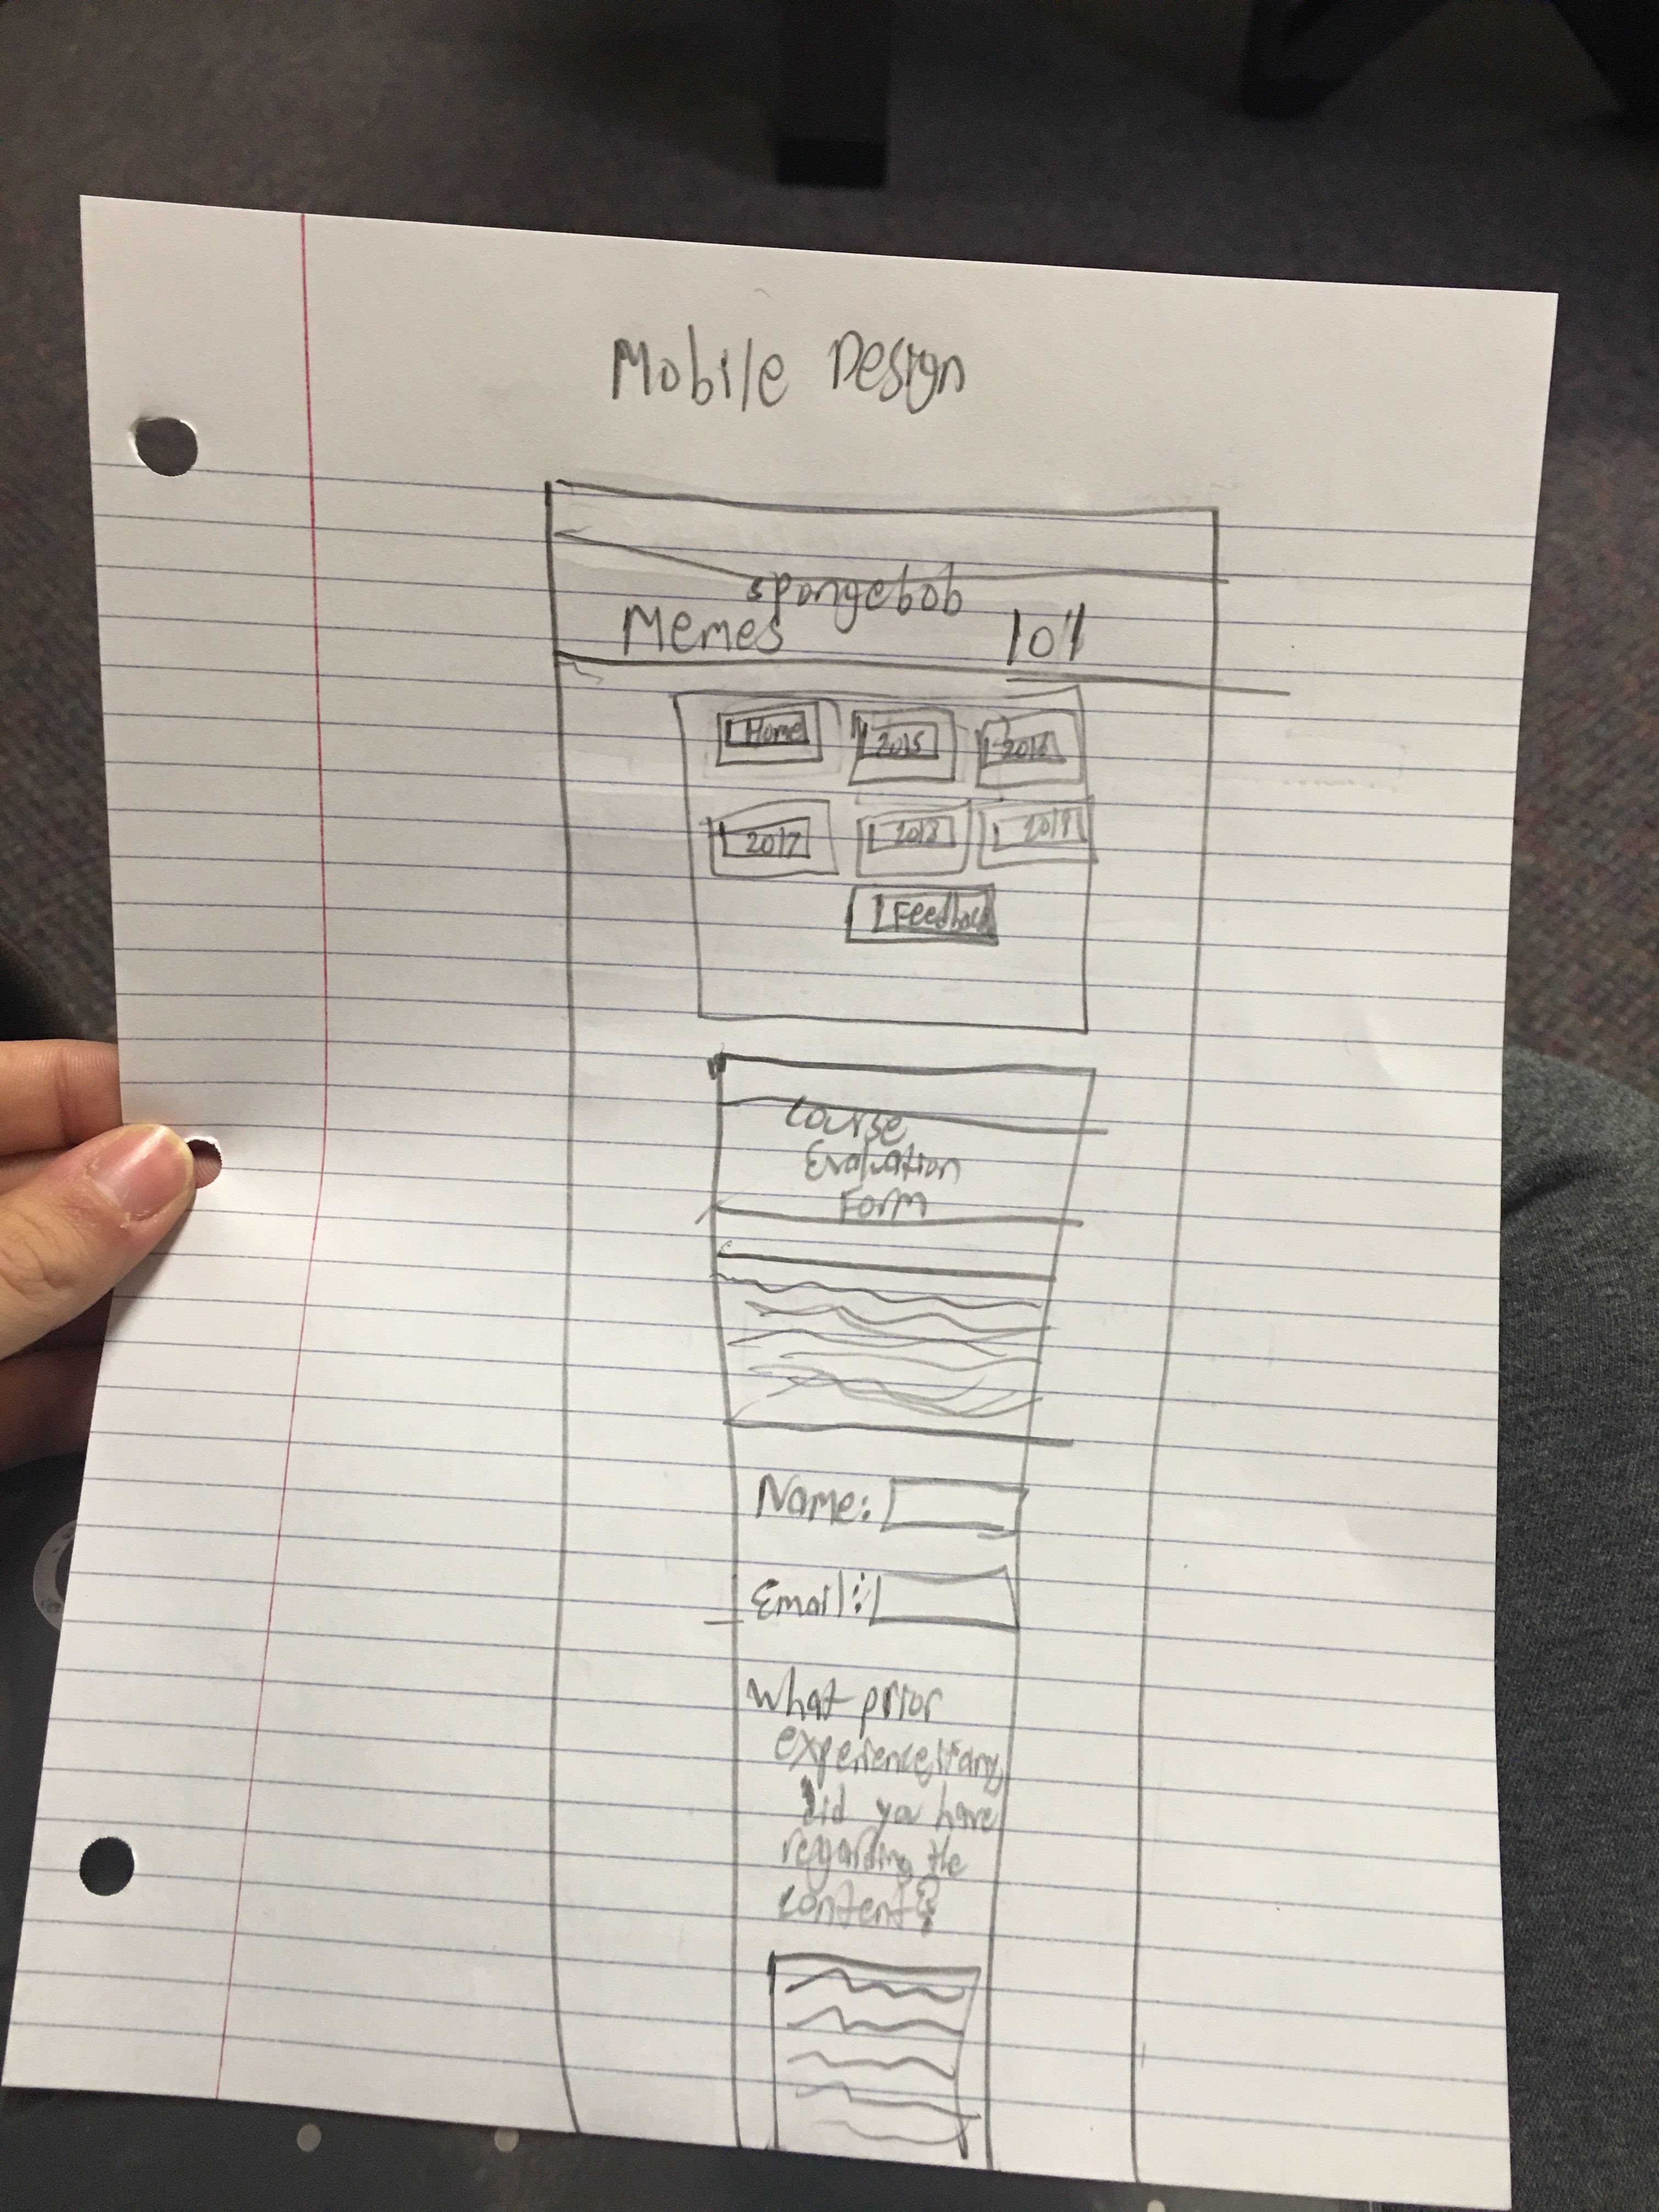 Mobile Design
spongebob
Memes 101
Home 2015 2016
2017 2018 2019
Feedback
Course
Evaluation
Form
Name:
Email:
What prior
experience, if any,
did you have
regarding the
content?